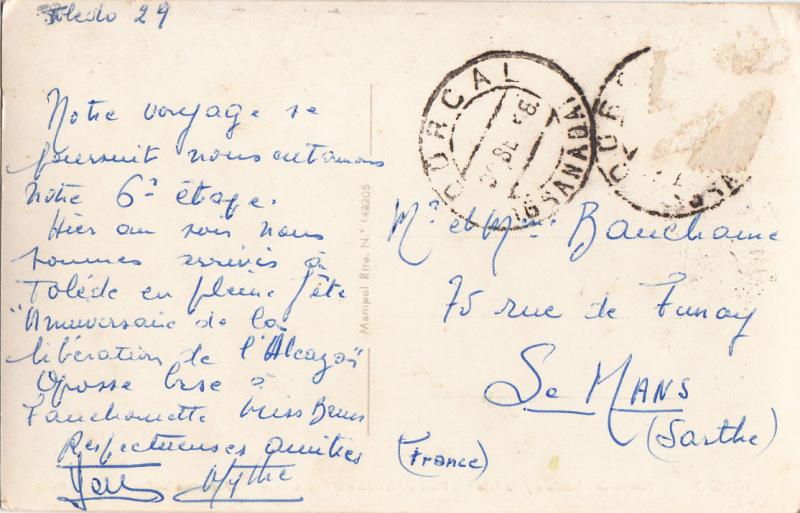 Toledo 29
Notre voyage se
poursuit nous entamons
notre 6è étape.
Hier au soir nous
sommes arrivés à
Tolède en pleine fête
"Anniversaire de la
libération de l'Alcazar"
Grosse bise à
Fanchonnette Miss
Respectueuses amitiés
Mr et Mme Bauchaine
75 rue de Funay
Le MANS
(Sarthe)
(France)
DURCAL
(GRANADA)
Manipol Rtro. N.° 142205